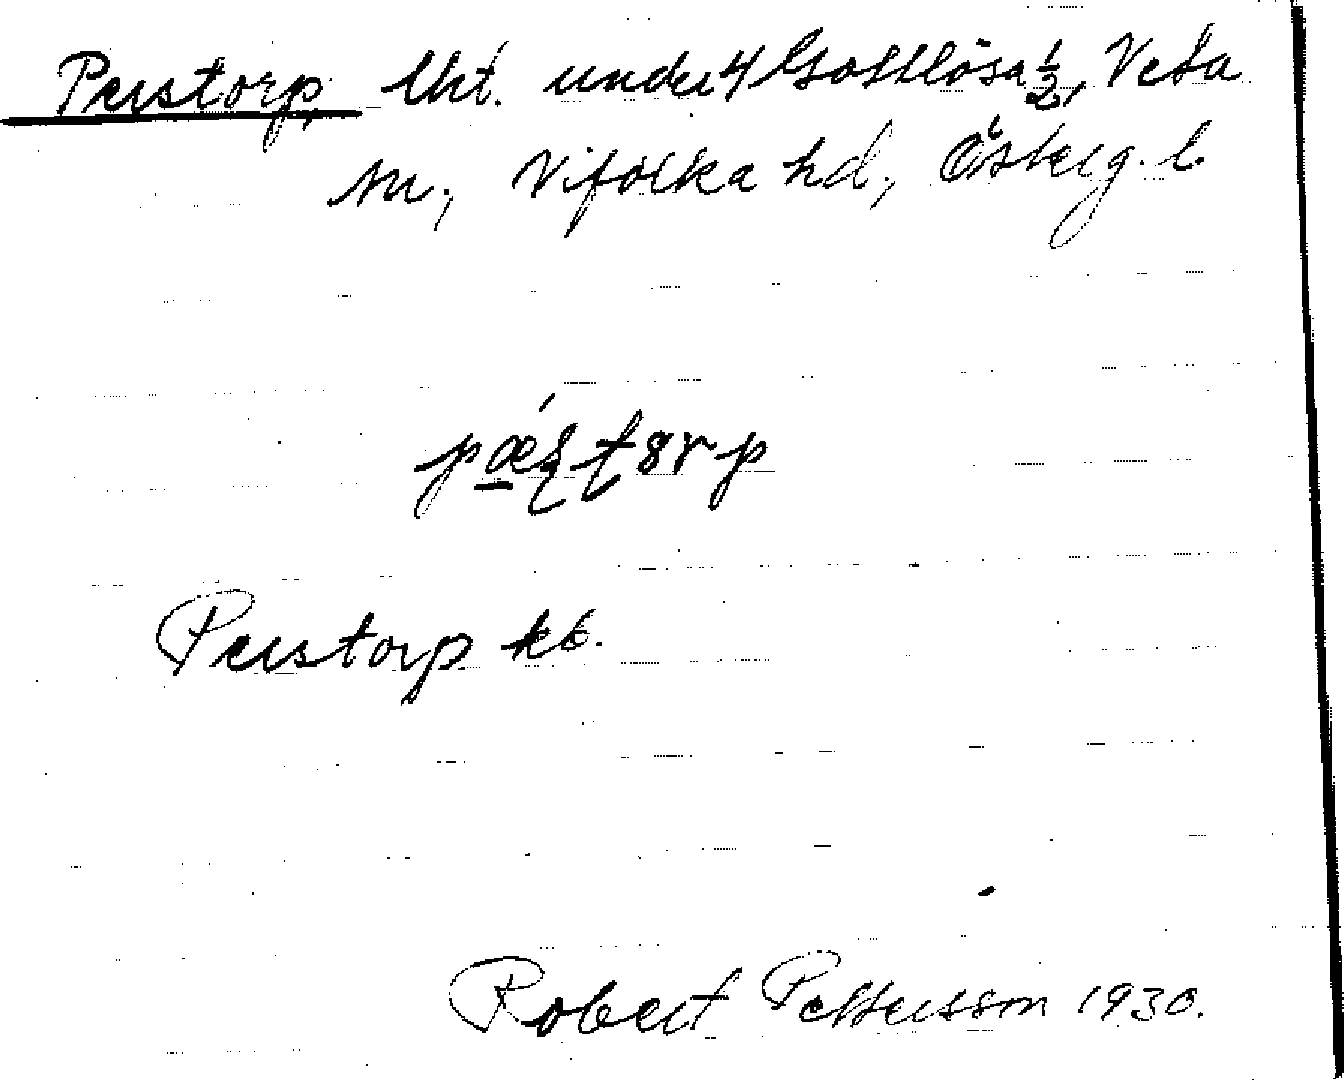 Perstorp, lht. under 4 Gottlösa 1/2, Veta
sn, Vifolka hd, Österg. l.
pǽʂʈ8rp
Perstorp kb.
Robert Pettersson 1930.